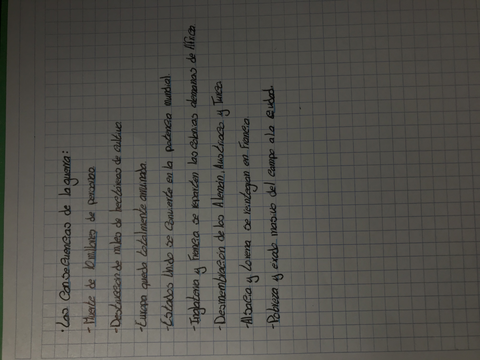 · Las Consecuencias de la guerra:
- Muerte de 10 millones de personas
- Destrucción de miles de hectáreas de cultivo
- Europa queda totalmente arruinada
- Estados Unido se convierte en la potencia mundial.
- Inglaterra y Francia se reparten las colonias alemanas de África.
- Desmembración de los Alemán, Austriaco y Turco
- Alsacia y Lorena se reintegran en Francia
- Pobreza y exodo masivo del campo a la ciudad.